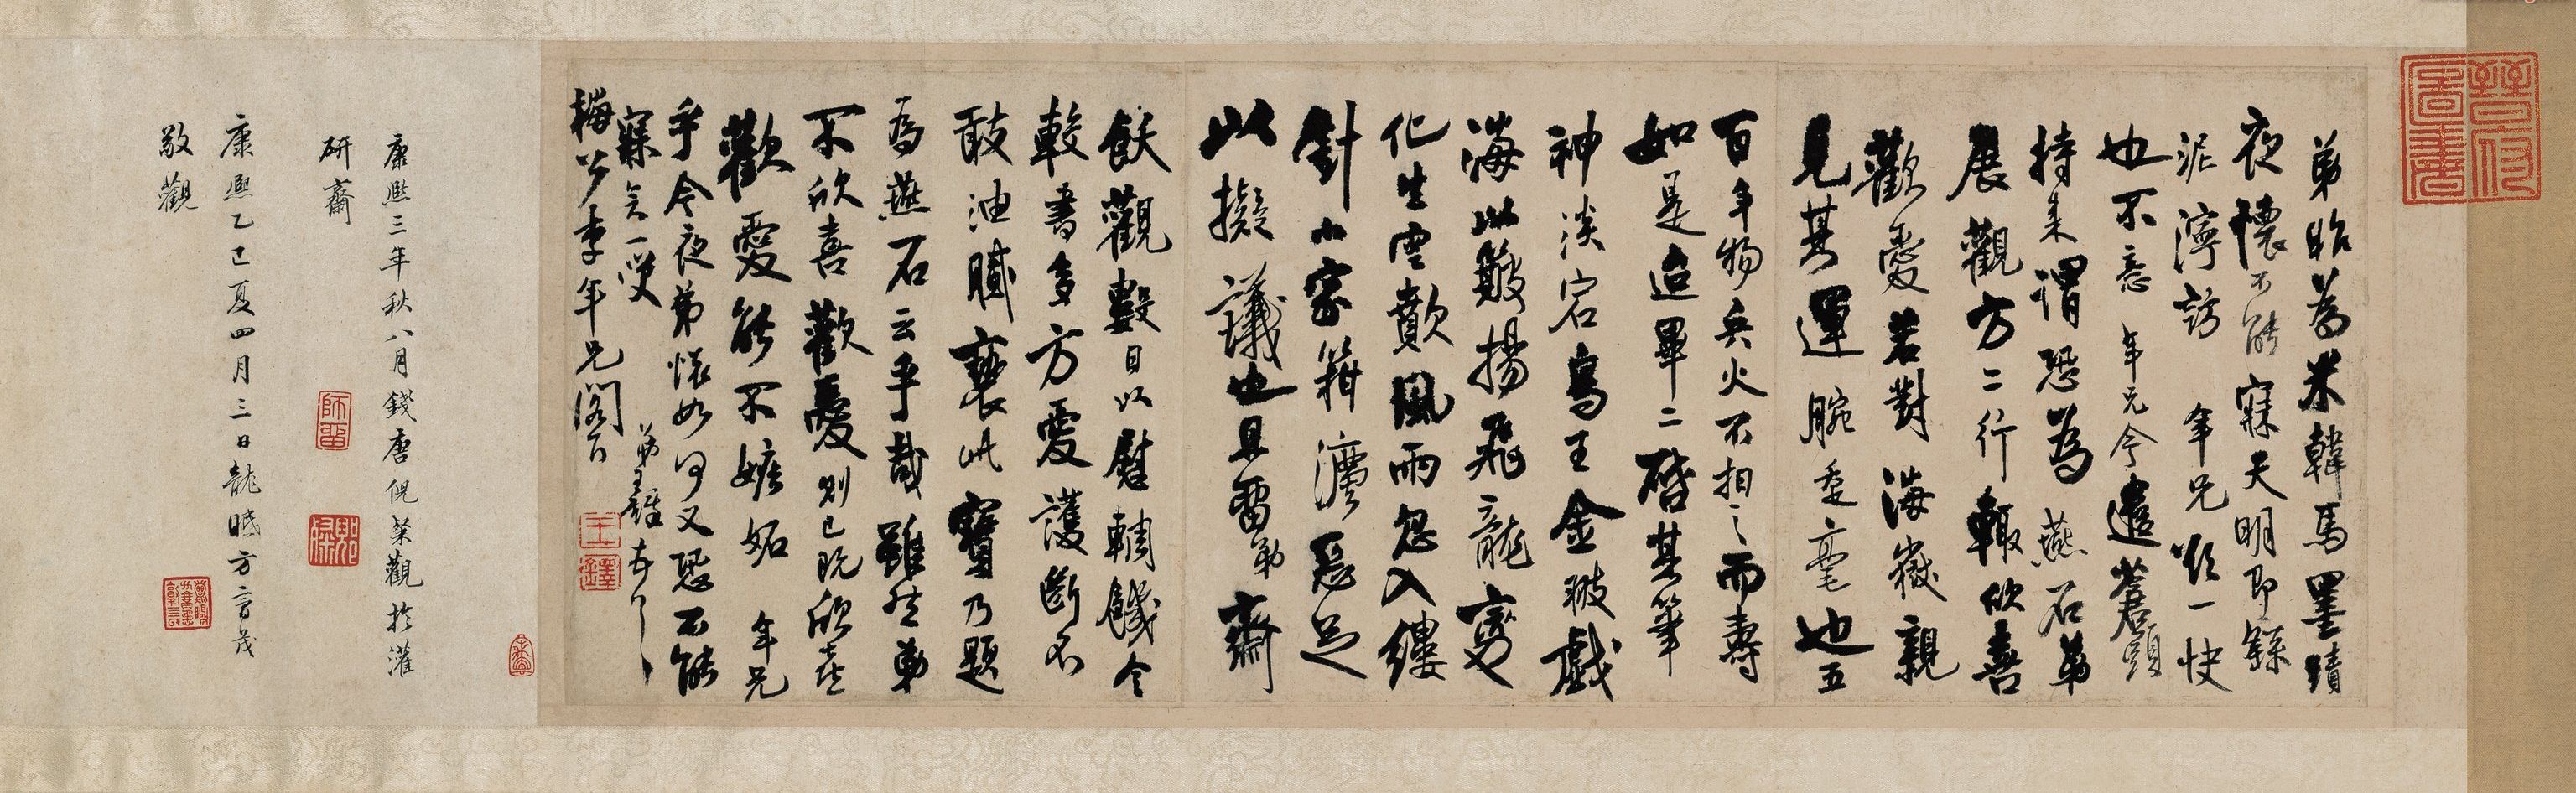 弟昨為米韓馬墨蹟
夜懷不能寐天明即繇
泥濘訪年兄以一快
也不意年兄今遣蒼頭
持來謂恐為燕石弟
展觀方二行輙欣喜
歡愛若對海嶽親
見其運腕垂毫也五
百年物兵火不相之而壽
如是迨畢二啓其筆
神淡宕烏王金玻戲
海以簸揚飛龍變
化生雲歕風雨忽入縷
針小家籍濃惡足
以擬議也且留弟齋
飫觀數日以慰輖饑今
較書多方愛護斷不
敢油膩褻此寶乃題
為燕石云乎哉雖然弟
不欣喜歡愛則已既欣喜
歡愛能不嫉妬年兄
乎今夜弟懷如何又恐不能
寐矣一笑弟王鐸
梅公李年兄閣下
王鐸
康熙三年秋八月錢唐倪粲觀於灌
研齋
康熙乙巳夏四月三日龍眠方育茂
敬觀